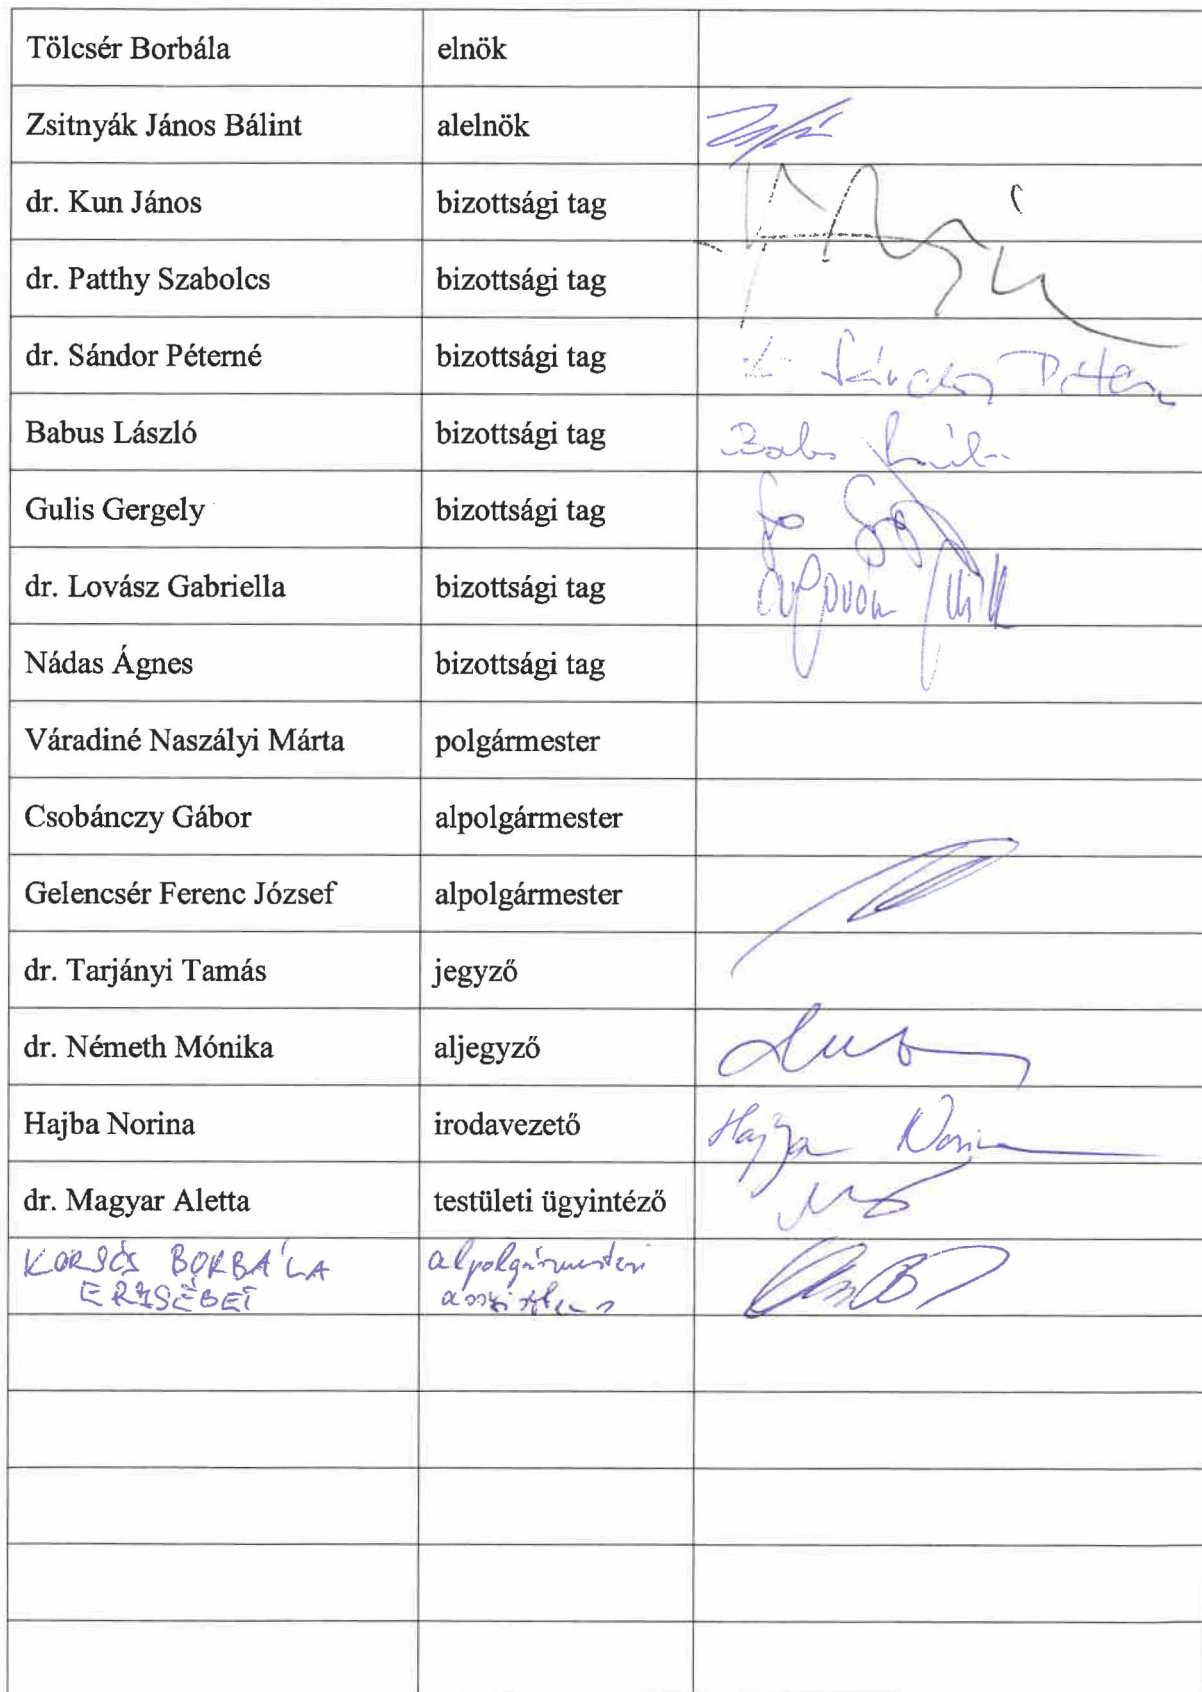 Tölcsér Borbála elnök
Zsitnyák János Bálint alelnök
dr. Kun János bizottsági tag
dr. Patthy Szabolcs bizottsági tag
dr. Sándor Péterné bizottsági tag
Babus László bizottsági tag
Gulis Gergely bizottsági tag
dr. Lovász Gabriella bizottsági tag
Nádas Ágnes bizottsági tag
Váradiné Naszályi Márta polgármester
Csobánczy Gábor alpolgármester
Gelencsér Ferenc József alpolgármester
dr. Tarjányi Tamás jegyző
dr. Németh Mónika aljegyző
Hajba Norina irodavezető Hajba Norina
dr. Magyar Aletta testületi ügyintéző
KORSÓS BORBÁLA alpolgármesteri
ERZSÉBET asszisztens